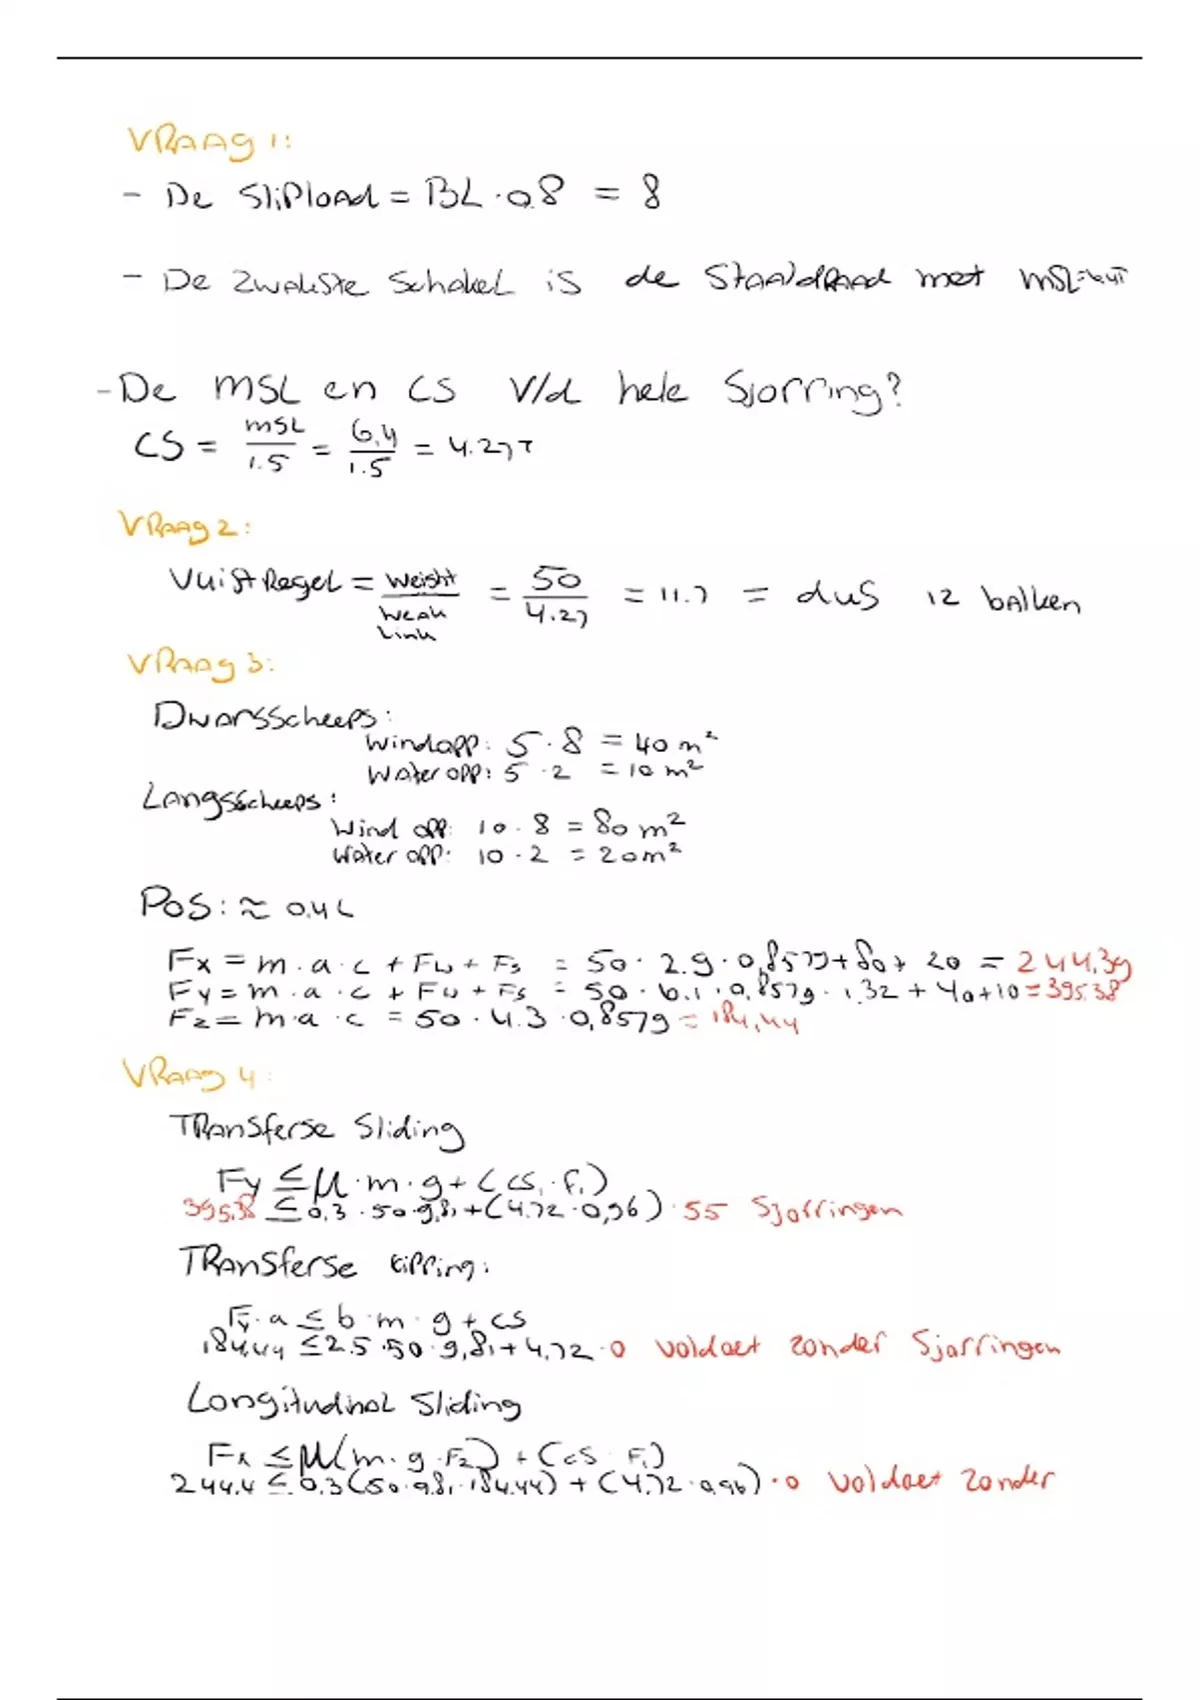 Vraag 1:
- De Slipload = BL · 0.8 = 8
- De Zwakste Schakel is de Staaldraad met MSL=6.4T
- De MSL en CS v/d hele Sjorring?
CS = MSL / 1.5 = 6,4 / 1.5 = 4.27T
Vraag 2:
Vuistregel = Weight / Weak Link = 50 / 4.27 = 11.7 = dus 12 balken
Vraag 3:
Dwarsscheeps:
Windopp: 5 · 8 = 40 m²
Water opp: 5 · 2 = 10 m²
Langsscheeps:
Wind opp: 10 · 8 = 80 m²
Water opp: 10 · 2 = 20 m²
Pos: ≈ 0.4L
Fx = m · a · c + Fw + Fs = 50 · 2.9 · 0,8579 + 80 + 20 = 244.39
Fy = m · a · c + Fw + Fs = 50 · 6.1 · 0,8579 · 1.32 + 40 + 10 = 395.38
Fz = m · a · c = 50 · 4.3 · 0,8579 = 184,44
Vraag 4:
Transferse Sliding
Fy ≤ μ · m · g + (CS, · F,)
395.38 ≤ 0.3 · 50 · 9,81 + (4.72 · 0,96) · 55 Sjorringen
Transferse tipping:
Fy · a ≤ b · m · g + CS
184.44 ≤ 2.5 · 50 · 9,81 + 4,72 · 0 voldoet zonder Sjorringen
Longitudinal Sliding
Fx ≤ μ(m · g · Fz) + (CS · F,)
244.4 ≤ 0.3(50 · 9.81 · 184.44) + (4.72 · 0.96) · 0 voldoet zonder